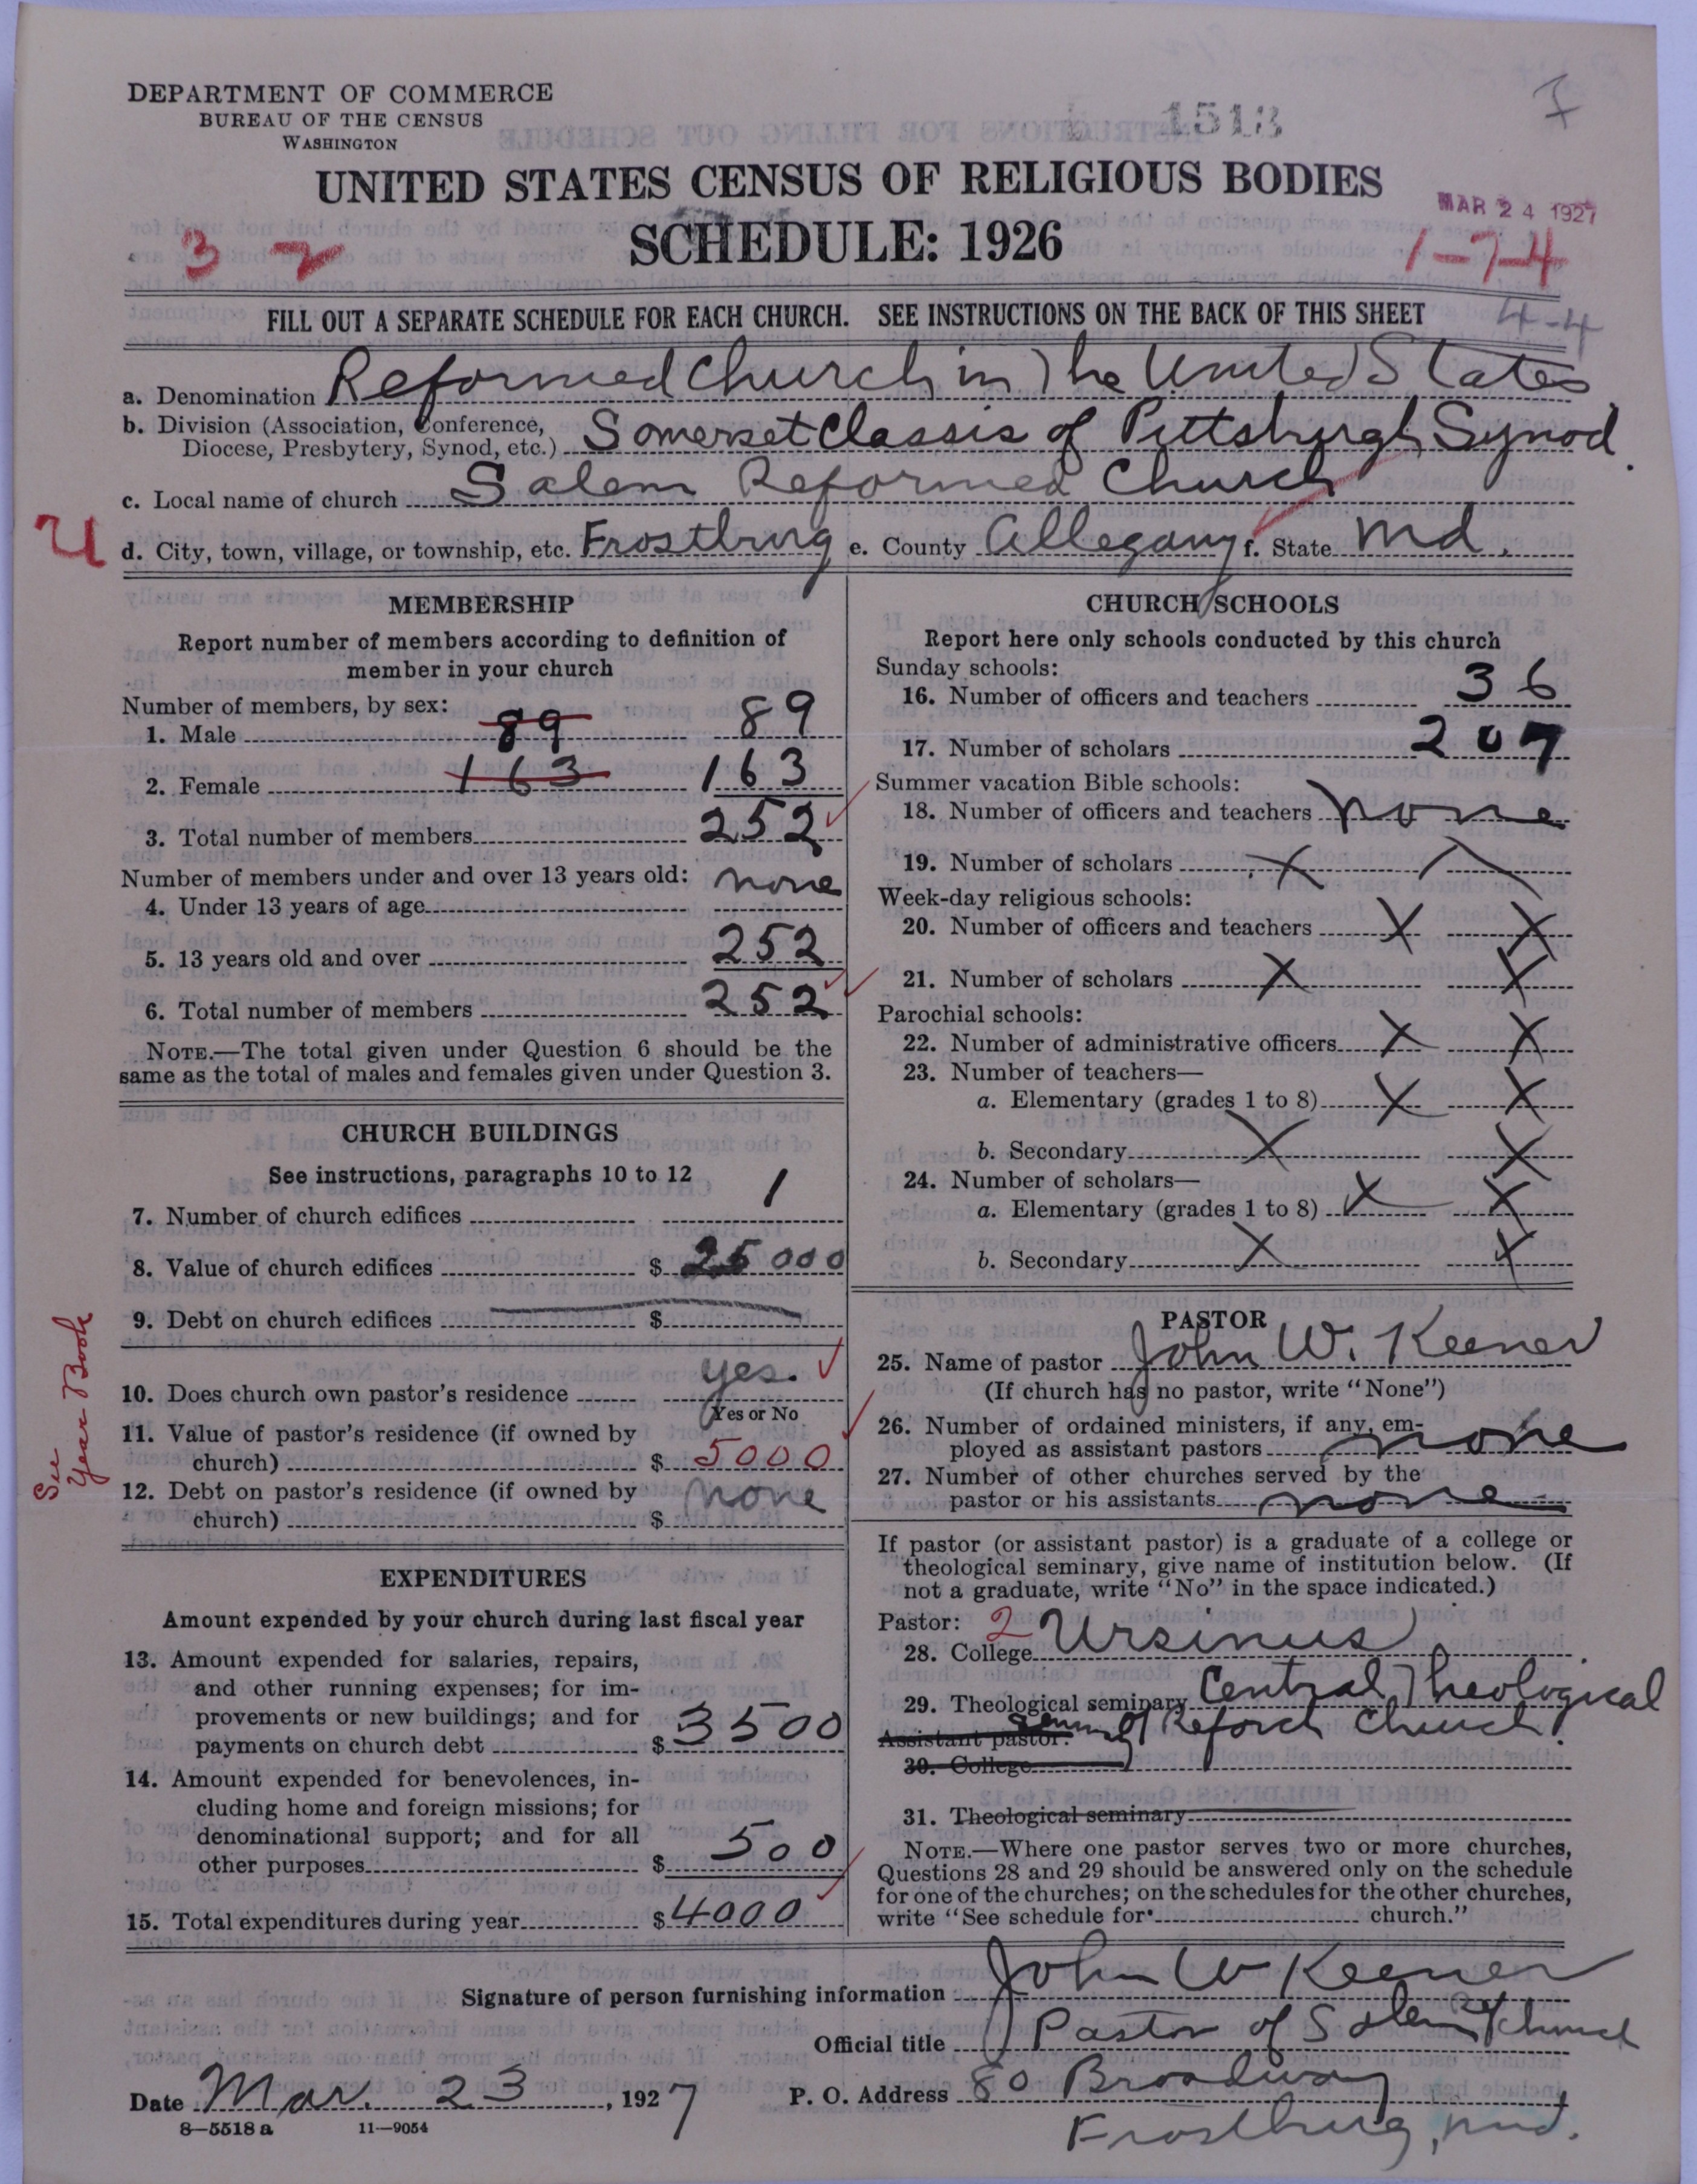 DEPARTMENT OF COMMERCE
BUREAU OF THE CENSUS
WASHINGTON
1513
UNITED STATES CENSUS OF RELIGIOUS BODIES
MAR 24 1927
SCHEDULE: 1926
3 2
1-7-4
FILL OUT A SEPARATE SCHEDULE FOR EACH CHURCH. SEE INSTRUCTIONS ON THE BACK OF THIS SHEET
4-4
a. Denomination Reformed Church in The United States
b. Division (Association, Conference, Diocese, Presbytery, Synod, etc.) Somerset Classis of Pittsburgh Synod.
c. Local name of church Salem Reformed Church
U
d. City, town, village, or township, etc. Frostburg e. County Allegany f. State Md.
MEMBERSHIP
Report number of members according to definition of
member in your church
Number of members, by sex:
1. Male 89 89
2. Female 163 163
3. Total number of members 252
Number of members under and over 13 years old:
4. Under 13 years of age none
5. 13 years old and over 252
6. Total number of members 252
NOTE.—The total given under Question 6 should be the
same as the total of males and females given under Question 3.
CHURCH BUILDINGS
See instructions, paragraphs 10 to 12
7. Number of church edifices 1
8. Value of church edifices $ 25000
9. Debt on church edifices $
10. Does church own pastor's residence yes.
Yes or No
11. Value of pastor's residence (if owned by
church) $ 5000
See Year Book
12. Debt on pastor's residence (if owned by
church) $ none
EXPENDITURES
Amount expended by your church during last fiscal year
13. Amount expended for salaries, repairs,
and other running expenses; for im-
provements or new buildings; and for
payments on church debt $ 3500
14. Amount expended for benevolences, in-
cluding home and foreign missions; for
denominational support; and for all
other purposes $ 500
15. Total expenditures during year $ 4000
CHURCH SCHOOLS
Report here only schools conducted by this church
Sunday schools:
16. Number of officers and teachers 36
17. Number of scholars 207
Summer vacation Bible schools:
18. Number of officers and teachers none
19. Number of scholars X
Week-day religious schools:
20. Number of officers and teachers X X
21. Number of scholars X X
Parochial schools:
22. Number of administrative officers X X
23. Number of teachers—
a. Elementary (grades 1 to 8) X X
b. Secondary X X
24. Number of scholars—
a. Elementary (grades 1 to 8) X X
b. Secondary X X
PASTOR
25. Name of pastor John W. Keener
(If church has no pastor, write "None")
26. Number of ordained ministers, if any, em-
ployed as assistant pastors none
27. Number of other churches served by the
pastor or his assistants none
If pastor (or assistant pastor) is a graduate of a college or
theological seminary, give name of institution below. (If
not a graduate, write "No" in the space indicated.)
Pastor:
28. College 2 Ursinus
29. Theological seminary Central Theological
Assistant pastor: of Church
30. College
31. Theological seminary
NOTE.—Where one pastor serves two or more churches,
Questions 28 and 29 should be answered only on the schedule
for one of the churches; on the schedules for the other churches,
write "See schedule for church."
Signature of person furnishing information John W Keener
Official title Pastor of Salem Ref Church
Date Mar. 23, 1927 P. O. Address 80 Broadway
Frostburg, Md.
8—5518 a 11—9054